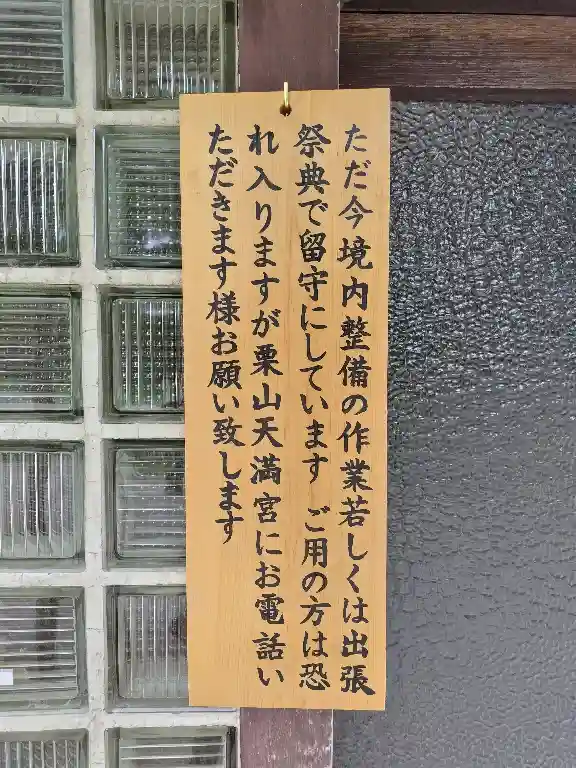 ただ今境内整備の作業若しくは出張
祭典で留守にしています　ご用の方は恐
れ入りますが栗山天満宮にお電話い
ただきます様お願い致します